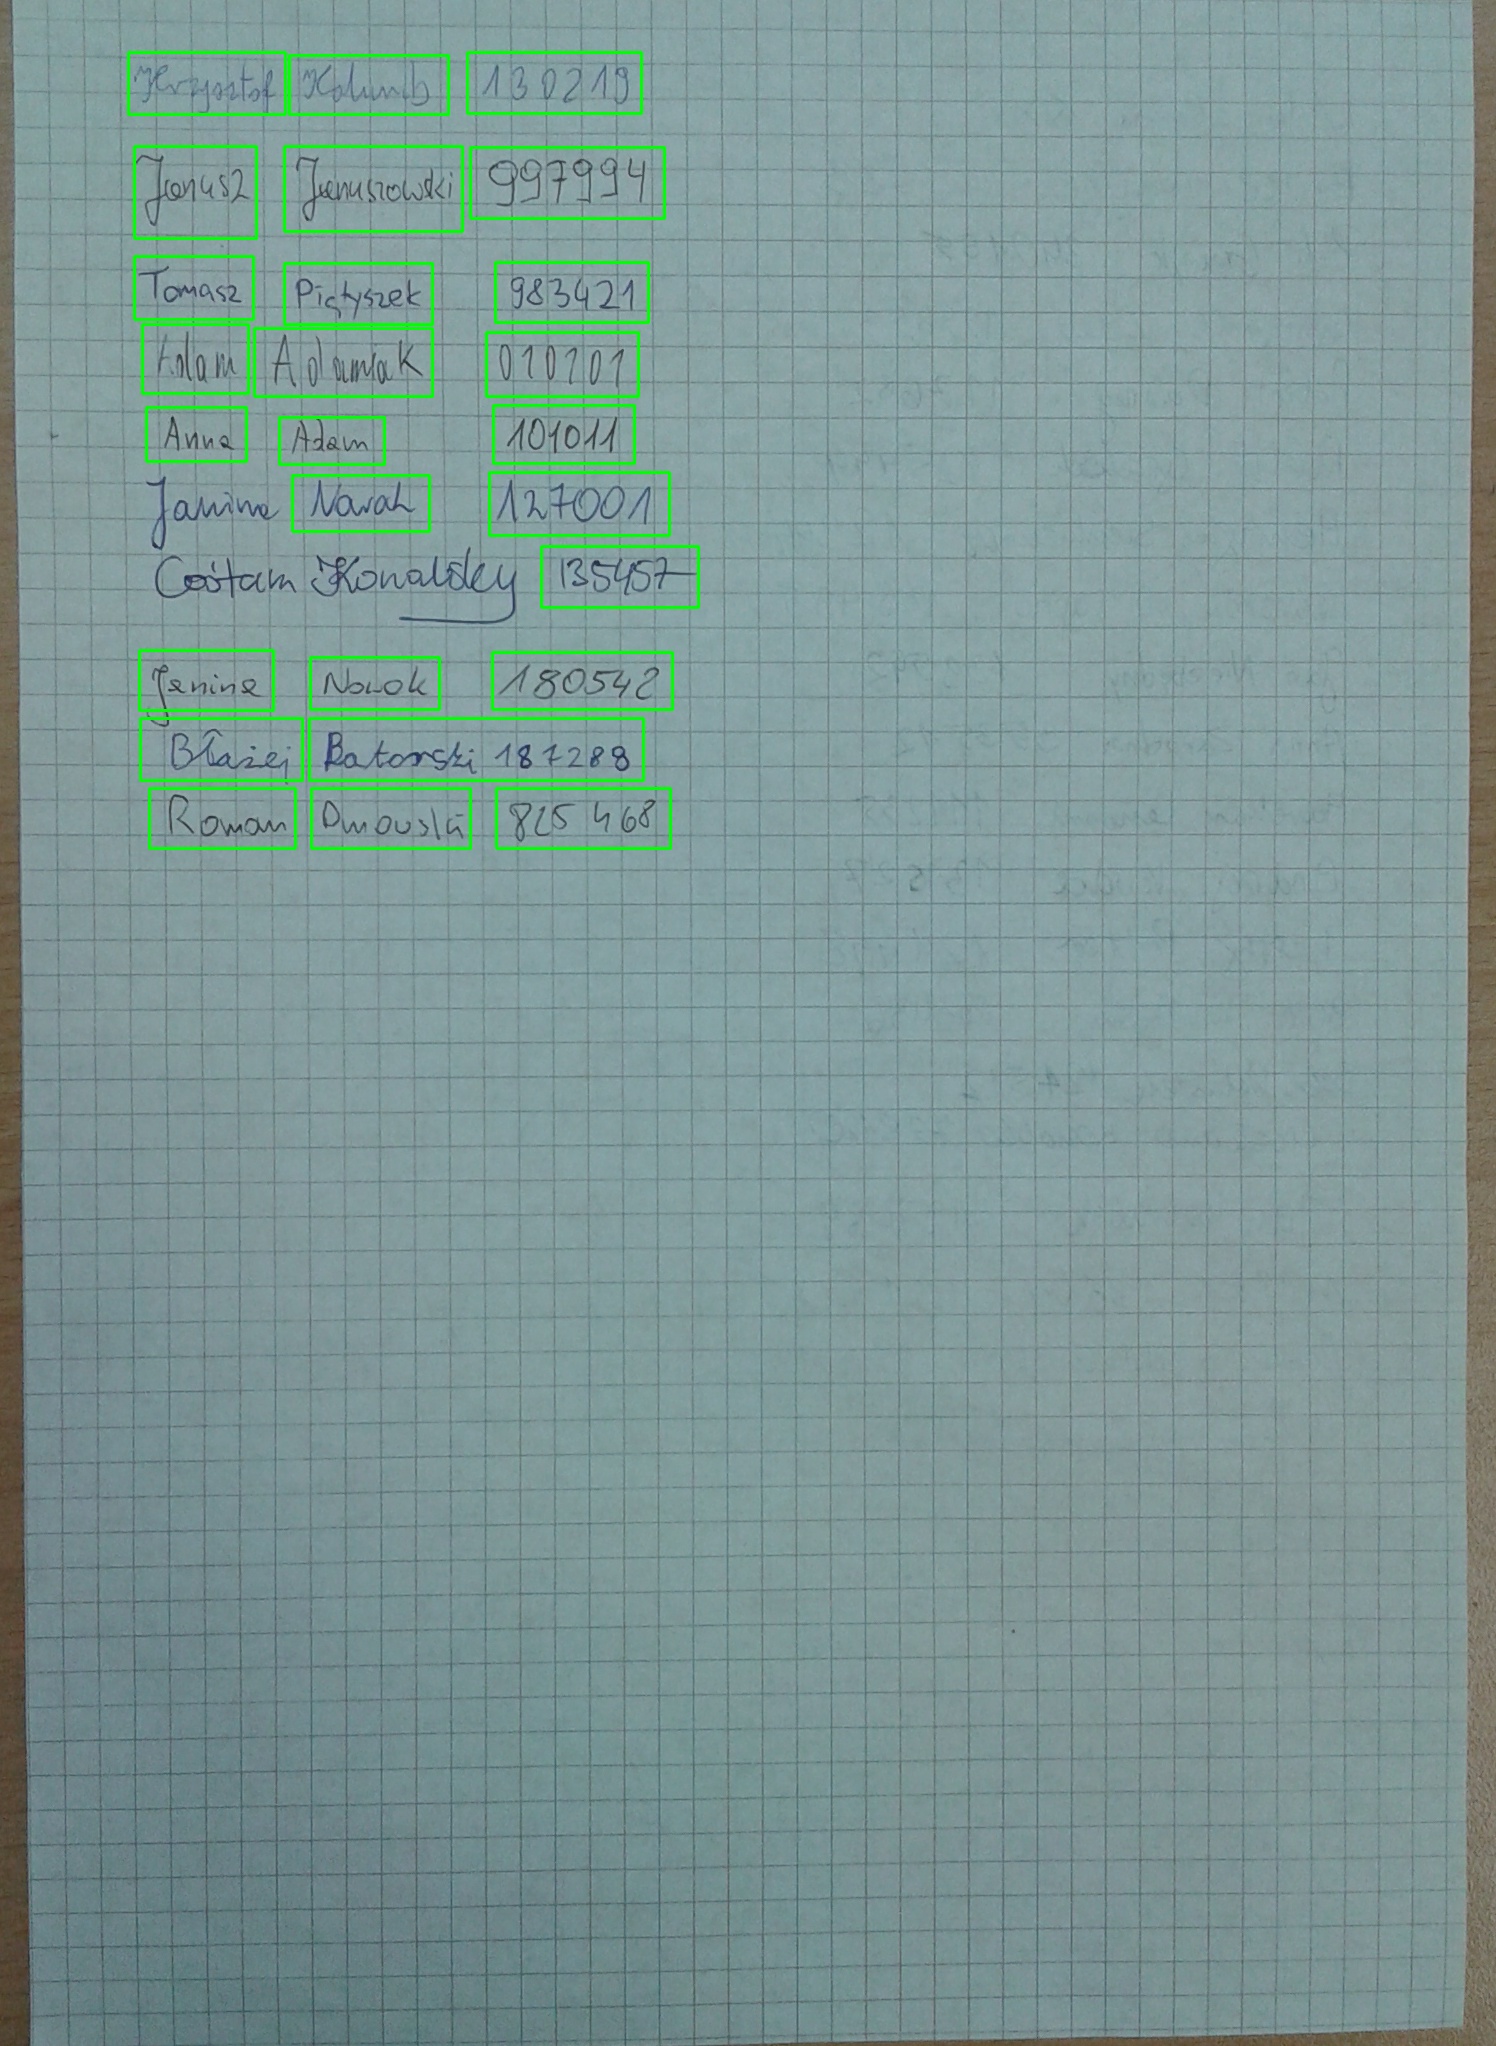 Krzysztof Kolumb 130219
Janusz Januszowski 997994
Tomasz Piętyszek 983421
Adam Adamiak 010101
Anna Adam 101011
Janina Nowak 127001
Cośtam Konalsky 135457
Janina Nowak 180542
Błażej Batorski 187288
Roman Dmowski 825 468